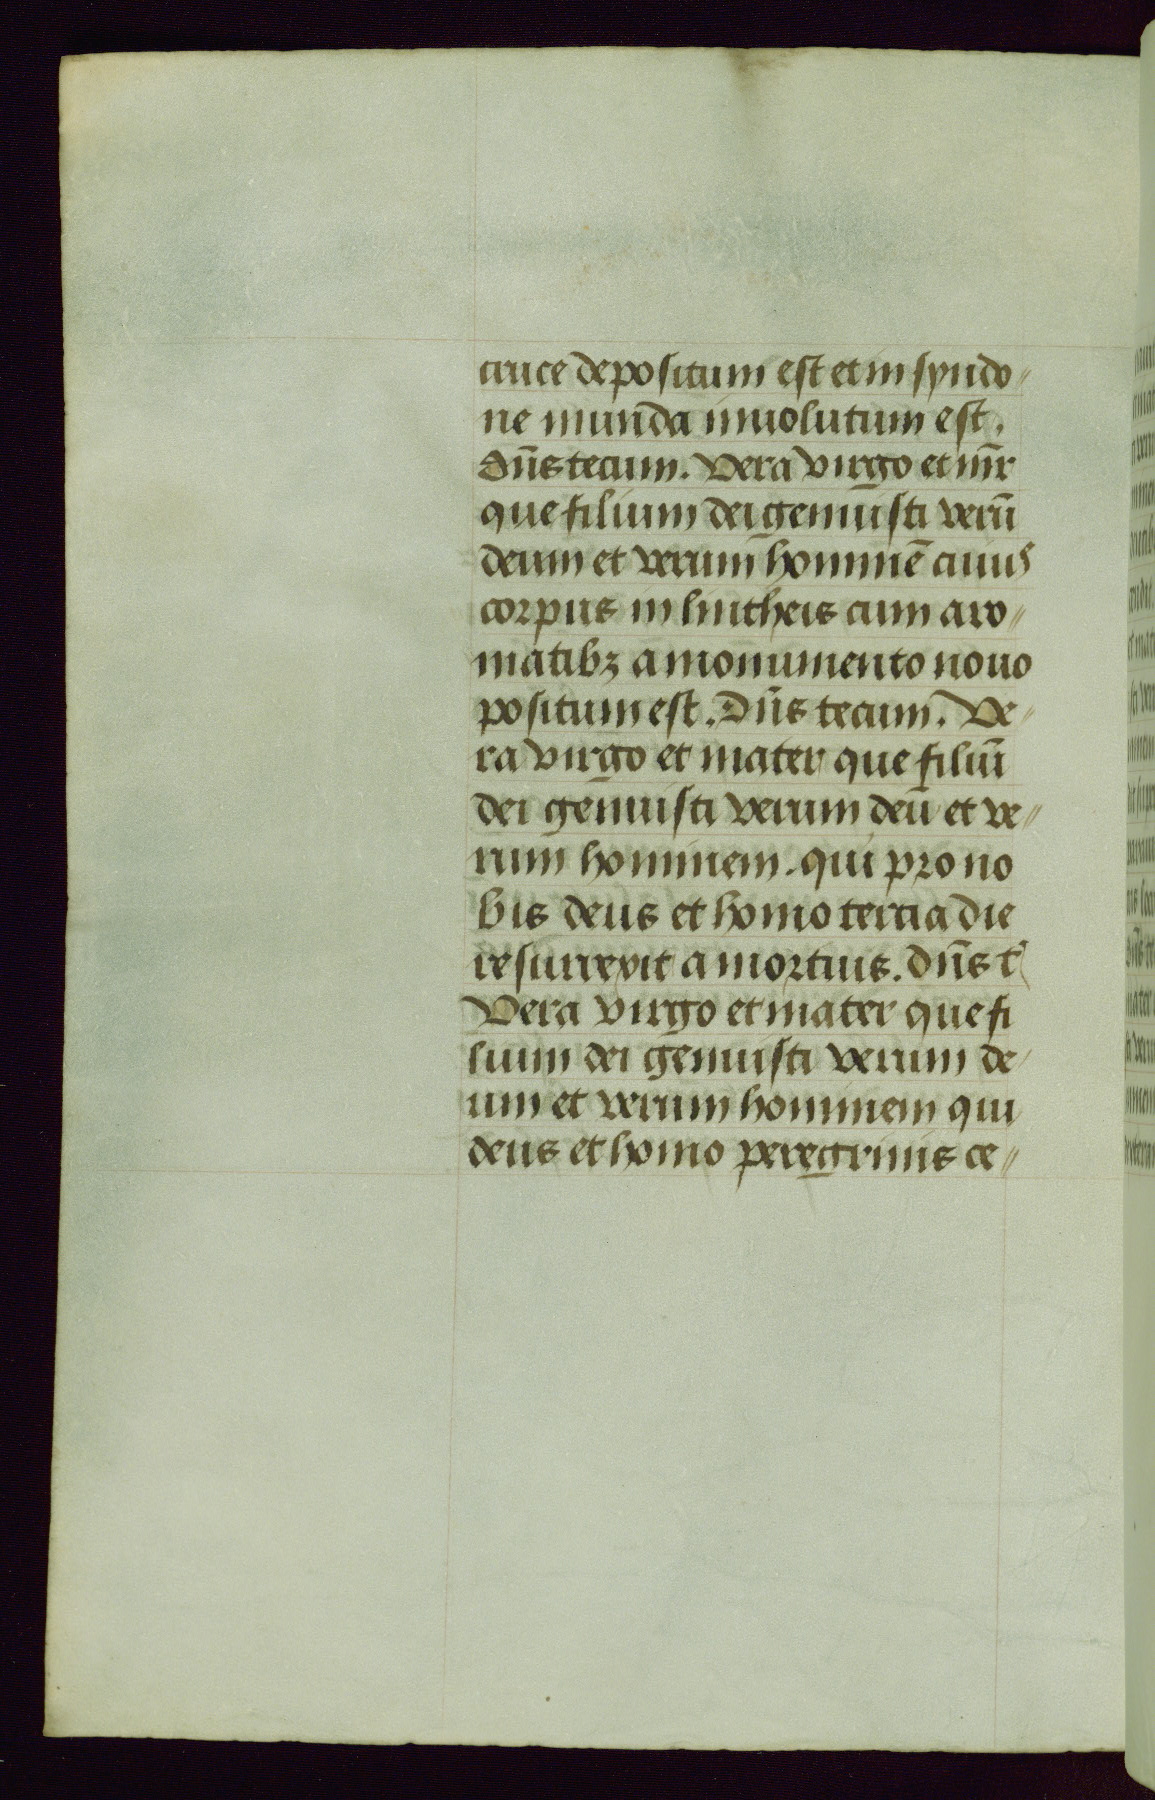 cruce depositum est et in syndo-
ne munda inuolutum est.
Dn̄s tecum. Vera virgo et mr̄
que filium dei genuisti verū
deum et verum hominē cuius
corpus in lintheis cum aro-
matibꝫ a monumento nouo
positum est. Dn̄s tecum. Ve-
ra virgo et mater que filiū
dei genuisti verum deū et ve-
rum hominem. qui pro no
bis deus et homo tercia die
resurrexit a mortuis. Dn̄s t
Vera virgo et mater que fi
lium dei genuisti verum de-
um et verum hominem qui
deus et homo peregrinis ce-